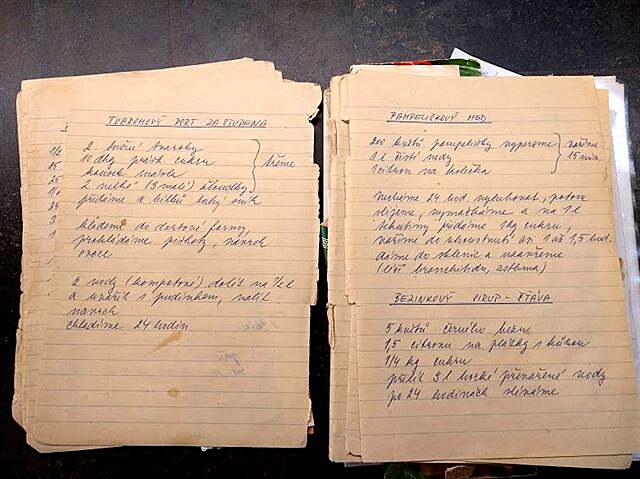 TVAROHOVÝ DORT ZA STUDENA
2 tvarohy
10 dkg prášk cukru
kousek másla
2 velké (3 malé) žloudky
třeme
přidáme z bílků tuhý sníh
klademe do dortové formy,
prokládáme piškoty, navrch
ovoce
z vody (kompotové) dolít na ½ l
a uvařit s pudinkem, nalít
navrch
chladíme 24 hodin
PAMPELIŠKOVÝ MED
200 květů pampelišky vypereme
1 l čisté vody
1 citron na kolečka
vaříme
15 min.
Necháme 24 hod. vyluhovat, potom
slijeme, vymačkáme a na 1 l
tekutiny přidáme 1 kg cukru,
vaříme do zhoustnutí asi 1 až 1,5 hod.
dáme do sklenic a uzavřeme
(léčí bronchitidu, astma)
BEZINKOVÝ SIRUP - ŠŤÁVA
5 květů černého bezu
1,5 citronu na plátky s kůrou
1/4 kg cukru
přelít 3 l horké převařené vody
po 24 hodinách slíváme